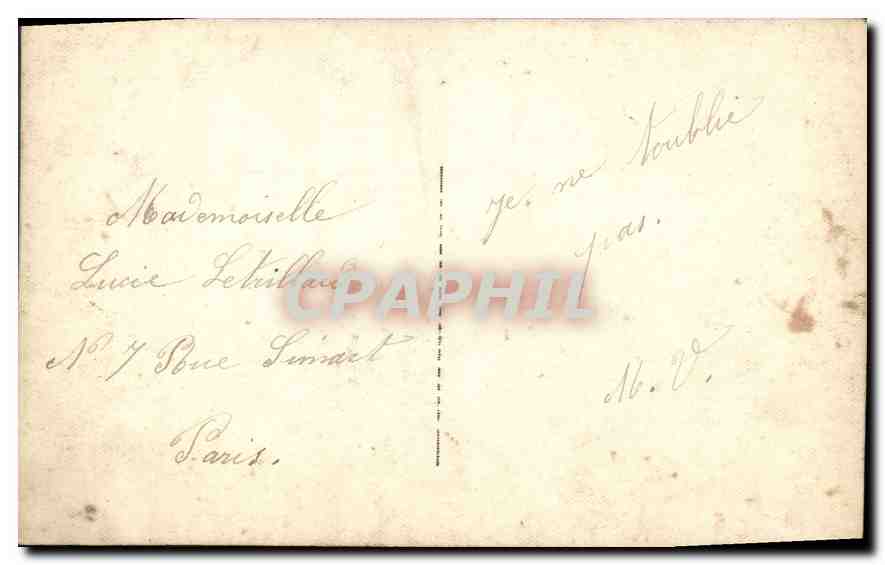 Mademoiselle
Lucie
N° 7 Rue
Paris.
je ne t'oublie
pas.
M. V.
CPAPHIL